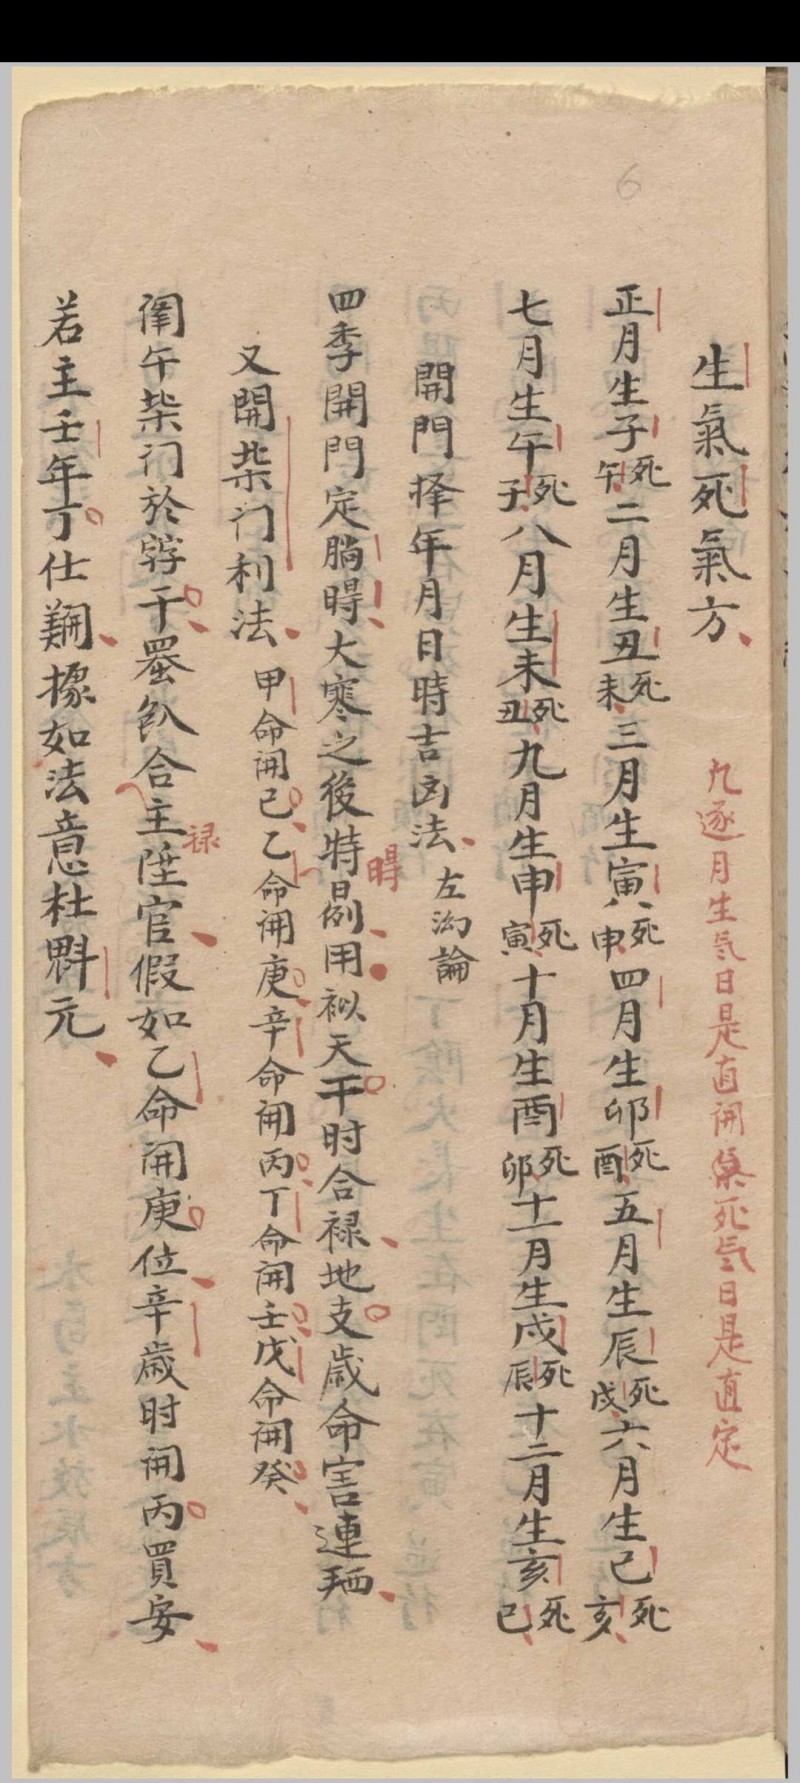 6
生氣死氣方
凢逐月生気日是直開㐫死気日是直定
正月生子死午二月生丑死未三月生寅死申四月生卯死酉五月生辰死戌六月生巳死亥
七月生午死子八月生未死丑九月生申死寅十月生酉死卯十一月生戌死辰十二月生亥死巳
開門择年月日時吉凶法 左泑論
四季開門定𦛨㝵大寒之後特別用𥘶天干时合禄地支歲命害連𫅜
㝵
又開柴门利法 甲命闹己乙命闹庚辛命闹丙丁命闹壬戊命闹癸
午柴门於辝干合主陞官假如乙命闹庚位辛歲时闹丙買安
禄
若主壬年丁仕據如法意杜魁元